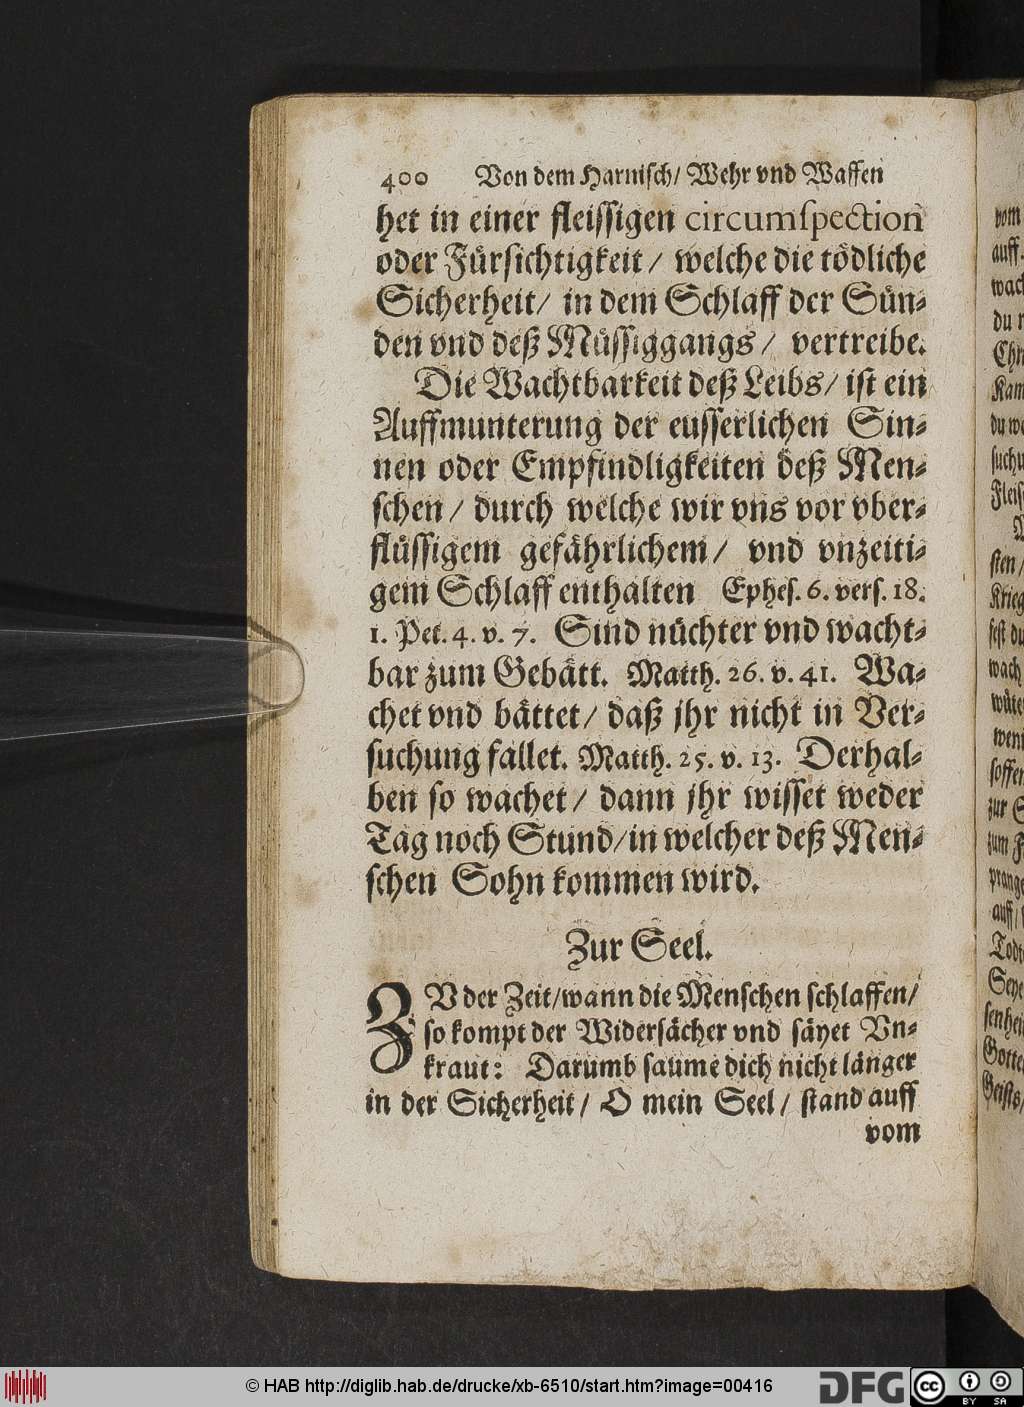 400 Von dem Harnisch/ Wehr vnd Waffen
het in einer fleissigen circumſpection
oder Fürsichtigkeit/ welche die tödliche
Sicherheit/ in dem Schlaff der Sün-
den vnd deß Müssiggangs/ vertreibe.
Die Wachtbarkeit deß Leibs/ ist ein
Auffmunterung der eusserlichen Sin-
nen oder Empfindligkeiten deß Men-
schen/ durch welche wir vns vor vber-
flüssigem gefährlichem/ vnd vnzeiti-
gem Schlaff enthalten Ephes. 6. vers. 18.
1. Pet. 4. v. 7. Sind nüchter vnd wacht-
bar zum Gebätt. Matth. 26. v. 41. Wa-
chet vnd bättet/ daß jhr nicht in Ver-
suchung fallet. Matth. 25. v. 13. Derhal-
ben so wachet/ dann jhr wisset weder
Tag noch Stund/ in welcher deß Men-
schen Sohn kommen wird.
Zur Seel.
ZV der Zeit/ wann die Menschen schlaffen/
so kompt der Widersächer vnd säyet Vn-
kraut: Darumb saume dich nicht länger
in der Sicherheit/ O mein Seel/ stand auff
vom
vom
auff.
du
sten/
auff/
© HAB http://diglib.hab.de/drucke/xb-6510/start.htm?image=00416
DFG
cc
BY SA